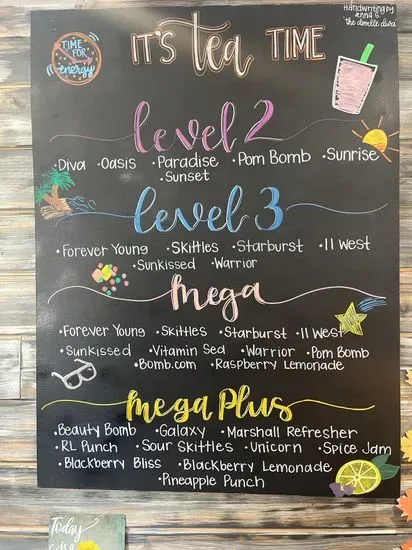 Handwriting by
Jenna G
"the doodle diva"
TIME FOR
energy
IT'S tea TIME
level 2
•Diva •Oasis •Paradise •Pom Bomb •Sunrise
•Sunset
level 3
•Forever Young •Skittles •Starburst •11 West
•Sunkissed •Warrior
mega
•Forever Young •Skittles •Starburst •11 West
•Sunkissed •Vitamin Sea •Warrior •Pom Bomb
•Bomb.com •Raspberry Lemonade
mega Plus
•Beauty Bomb •Galaxy •Marshall Refresher
•RL Punch •Sour Skittles •Unicorn •Spice Jam
•Blackberry Bliss •Blackberry Lemonade
•Pineapple Punch
Today